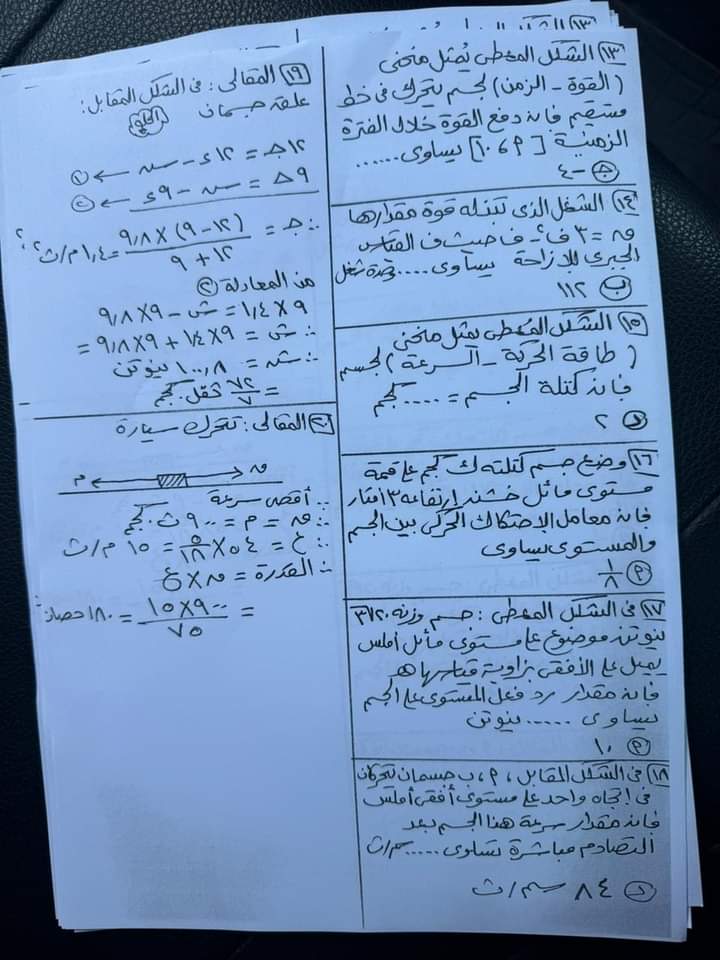 ١٣ الشكل المعطى يُمثل منحنى
(القوة - الزمن) لجسم يتحرك فى خط
مستقيم فإن دفع القوة خلال الفترة
الزمنية [٩، ١٠] يساوى ......
ج -٤
١٤ الشغل الذى تبذله قوة مقدارها
ق = ٣ف٢ - ف حيث ف القياس
الجبرى للإزاحة يساوى .... وحدة شغل
ب ١١٢
١٥ الشكل المُعطى يمثل منحنى
(طاقة الحركة - السرعة) لجسم
فإن كتلة الجسم = .... كجم
د ٢
١٦ وضع جسم كتلته ك كجم على قمة
مستوى مائل خشن ارتفاعه ٣ أمتار
فإن معامل الاحتكاك الحركى بين الجسم
والمستوى يساوى
أ ١/٨
١٧ فى الشكل المعطى: جسم وزنه
نيوتن موضوع على مستوى مائل أملس
يميل على الأفقى بزاوية قياسها هـ
فإن مقدار رد فعل المستوى على الجسم
يساوى ..... نيوتن
أ ١٠
١٨ فى الشكل المقابل، أ، ب جسمان تتحركان
فى إتجاه واحد على مستوى أفقى أملس
فإن مقدار سرعة هذا الجسم بعد
التصادم مباشرة تساوى ..... سم/ث
د ٨٤ سم/ث
١٩ المقالى: فى الشكل المقابل:
علقة جسمان
الحلو
١٢جـ = ١٢ء - سہ ← ١
٩جـ = سہ - ٩ء ← ٢
∴ جـ = (١٢ - ٩) × ٩,٨ / ١٢ + ٩ = ١,٤ م/ث٢
من المعادلة ٢
٩ × ١,٤ = ش - ٩ × ٩,٨
∴ ش = ٩ × ١,٤ + ٩ × ٩,٨ =
∴ ش = ١٠٠,٨ نيوتن
= ٧٢/٧ ثقل كجم
٢٠ المقالى: تتحرك سيارة
م ق
∵ أقصى سرعة
∴ ق = م = ٩٠٠ ث كجم
∴ ع = ٥٤ × ٥/١٨ = ١٥ م/ث
∴ القدرة = ق × ع
= ٩٠٠ × ١٥ / ٧٥ = ١٨٠ حصان